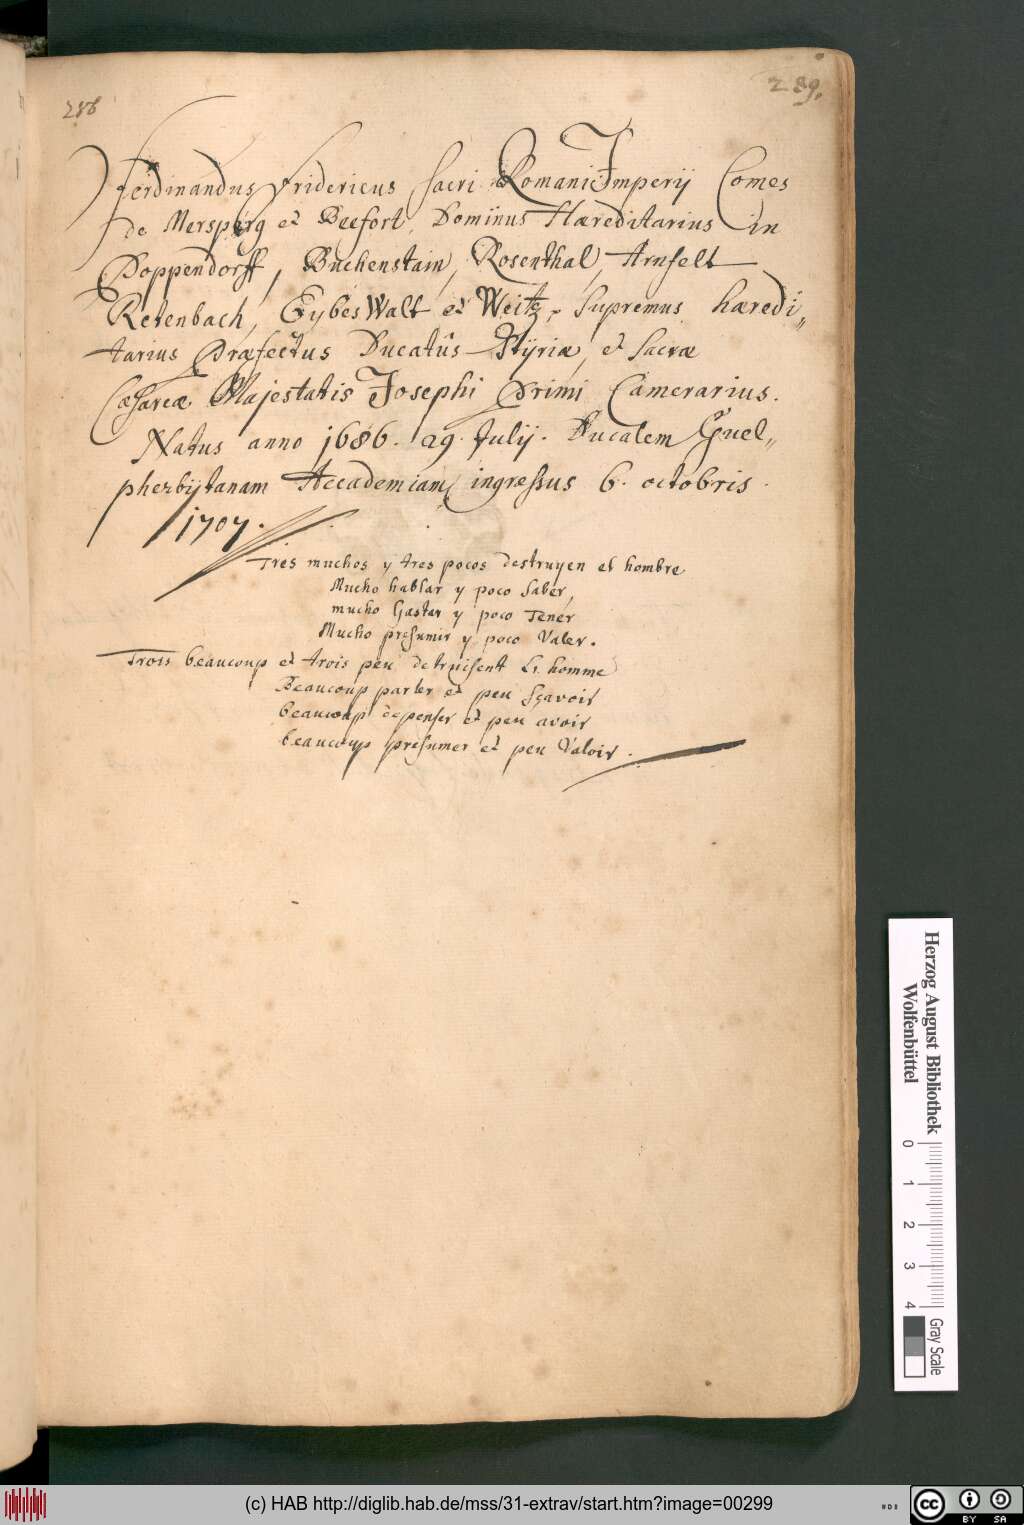 286
289.
Ferdinandus Fridericus Sacri Romani Imperij Comes
de Mersperg et Beefort, Dominus Hæreditarius in
Poppendorff, Buchenstain, Rosenthal, Arnfelt
Retenbach, Eybes Walt et Weitz, Supremus hæredi„
tarius Præfectus Ducatûs Styriæ, et Sacræ
Cæsareæ Majestatis Josephi Primi Camerarius.
Natus anno 1686. 29. Julij. Ducalem Guel„
pherbijtanam Accademiam ingressus 6. octobris.
1707.
Tres muchos y tres pocos destruyen el hombre
Mucho hablar y poco Saber,
mucho Gastar y poco Tener
Mucho presumir y poco Valer.
Trois beaucoup et trois peu detruisent L'homme
Beaucoup parler et peu Sçavoir
beaucoup depenser et peu avoir
beaucoup presumer et peu Valoir.
Herzog August Bibliothek
Wolfenbüttel
0 1 2 3 4
Gray Scale
(c) HAB http://diglib.hab.de/mss/31-extrav/start.htm?image=00299
cc BY SA